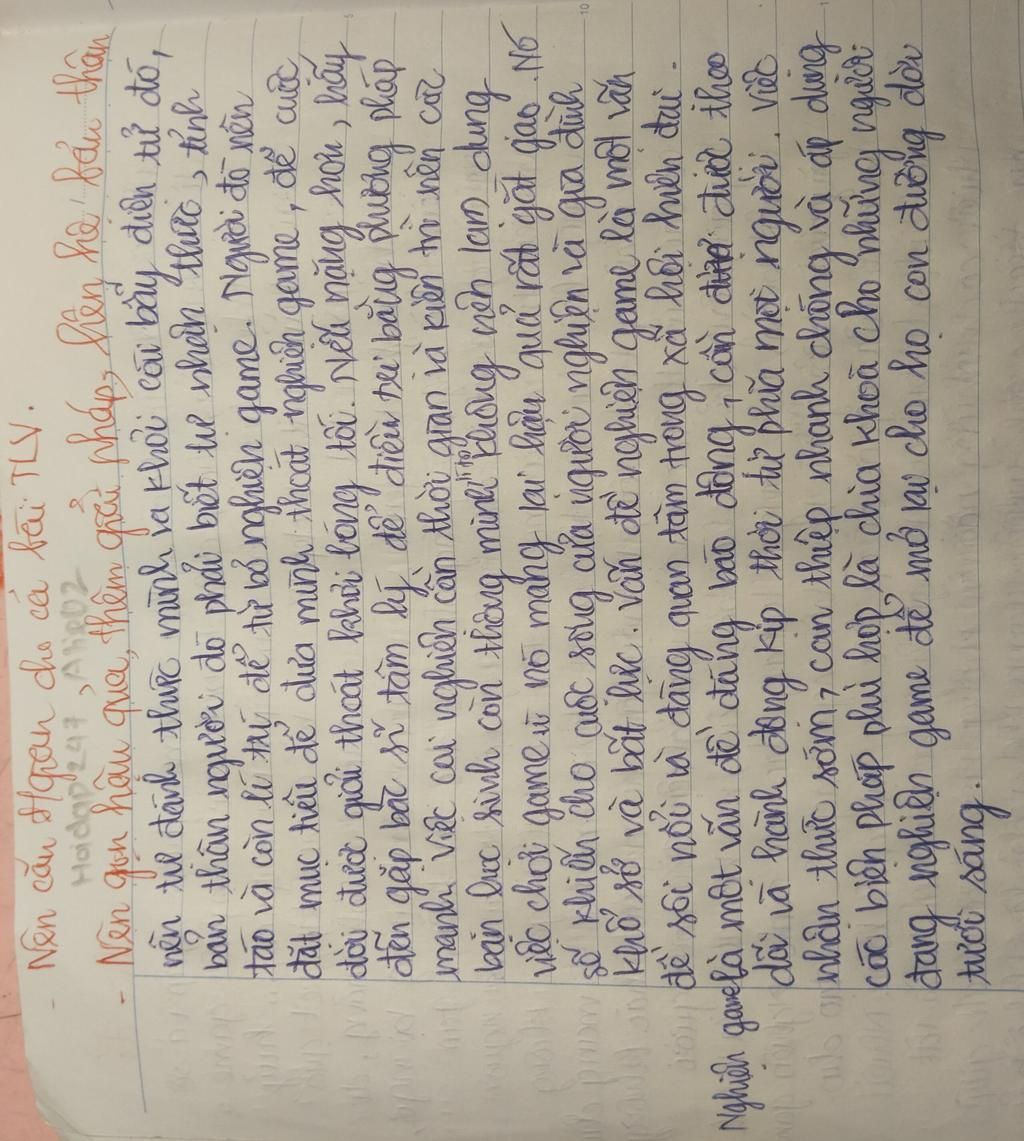 - Nên cần Ngoan cho cả bài TLV.
Hoidap247, Alie02
- Nên gọn hậu quả, thêm giải pháp, liên hệ bản thân
nên tự đánh thức mình ra khỏi cái bẫy điện tử đó,
bản thân người đó phải biết tự nhận thức, tỉnh
táo và còn lí trí để từ bỏ nghiện game. Người đó nên
đặt mục tiêu để đưa mình thoát nghiện game, để cuộc
đời được giải thoát khỏi bóng tối. Nếu nặng hơn, hãy
đến gặp bác sĩ tâm lý để điều trị bằng phương pháp
mạnh. Việc cai nghiện cần thời gian và kiên trì nên các
bạn học sinh còn thông minh không nên lạm dụng
việc chơi game vì nó mang lại hậu quả rất gắt gao. Nó
sẽ khiến cho cuộc sống của người nghiện và gia đình
khổ sở và bất lực. Vấn đề nghiện game là một vấn
đề sôi nổi và đáng quan tâm trong xã hội hiện đại.
Nghiện game là một vấn đề đáng báo động, cần được theo
dõi và hành động kịp thời từ phía mọi người. Việc
nhận thức sớm, can thiệp nhanh chóng và áp dụng
các biện pháp phù hợp là chìa khoá cho những người
đang nghiện game để mở lại cho họ con đường đời
tươi sáng.